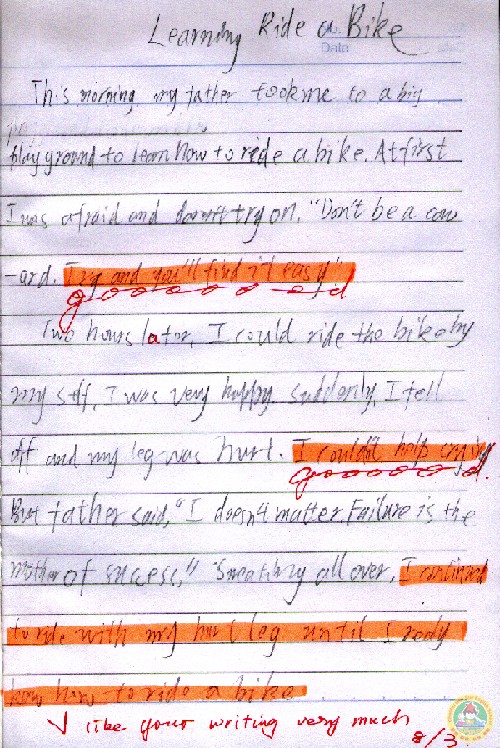 Learning Ride a Bike
Data
This morning my father took me to a big
play ground to learn how to ride a bike. At first
I was afraid and doesn't try on. "Don't be a cow
-ard. Try and you'll find it easy"
goooood
Two hours later, I could ride the bike by
my self. I was very happy. Suddenly, I fell
off and my leg was hurt. I couldn't help crying
goooood.
But father said, "I doesn't matter. Failure is the
mother of success," Sweating all over, I continued
to ride with my hurt leg until I realy
know how to ride a bike
I like your writing very much
8/3